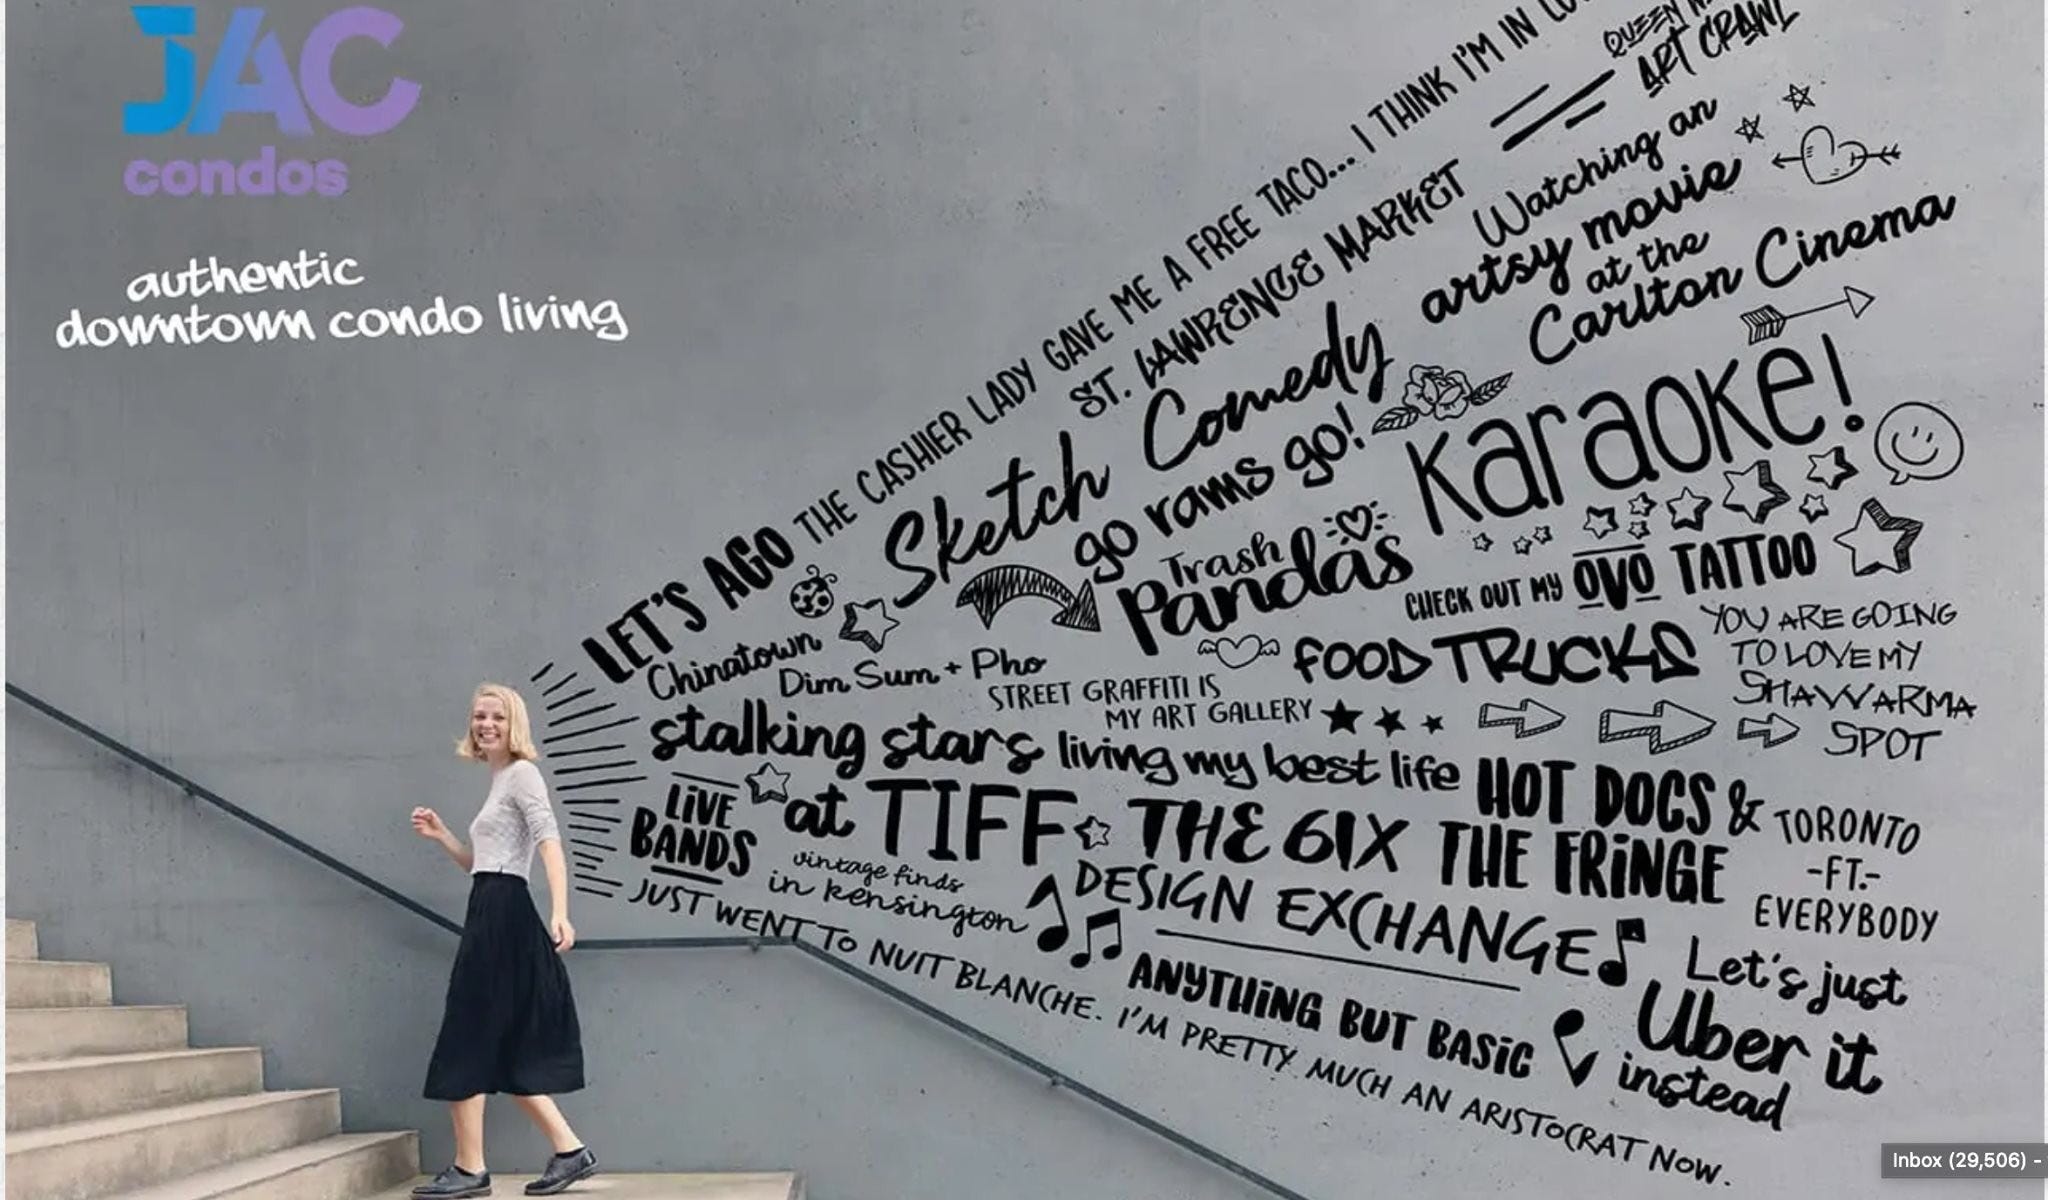 JAC
condos
authentic
downtown condo living
LET'S AGO THE CASHIER LADY GAVE ME A FREE TACO... I THINK I'M IN
QUEEN
ART CRAWL
ST. LAWRENCE MARKET
Watching an
artsy movie
at the
Carlton Cinema
Sketch Comedy
go rams go!
Karaoke!
Trash
Pandas
CHECK OUT MY OVO TATTOO
Chinatown
Dim Sum + Pho
FOOD TRUCKS
YOU ARE GOING
TO LOVE MY
SHAWARMA
SPOT
STREET GRAFFITI IS
MY ART GALLERY
stalking stars living my best life
HOT DOCS &
THE FRINGE
LIVE
BANDS
at TIFF
THE 6IX
TORONTO
-FT.-
EVERYBODY
vintage finds
in kensington
DESIGN EXCHANGE
JUST WENT TO NUIT BLANCHE. I'M PRETTY MUCH AN ARISTOCRAT NOW.
ANYTHING BUT BASIC
Let's just
Uber it
instead
Inbox (29,506) -